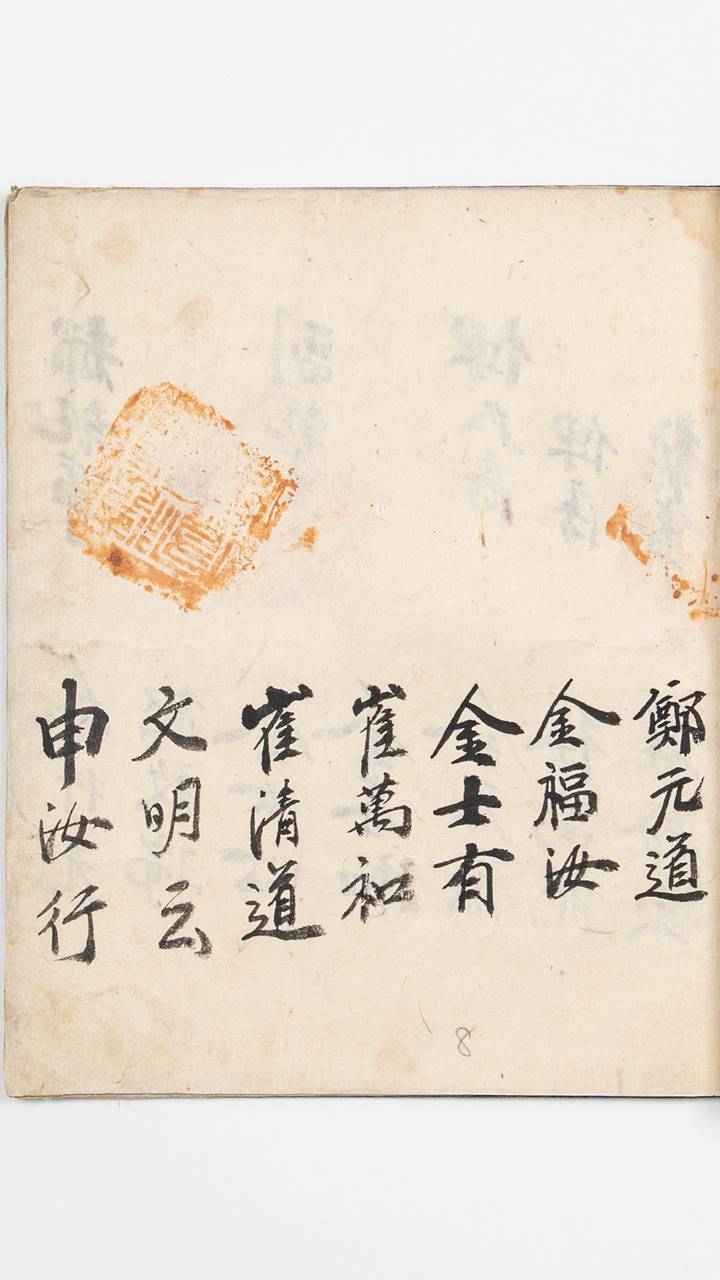 鄭元道
金福汝
金士有
崔萬和
崔清道
文明云
申汝行
8